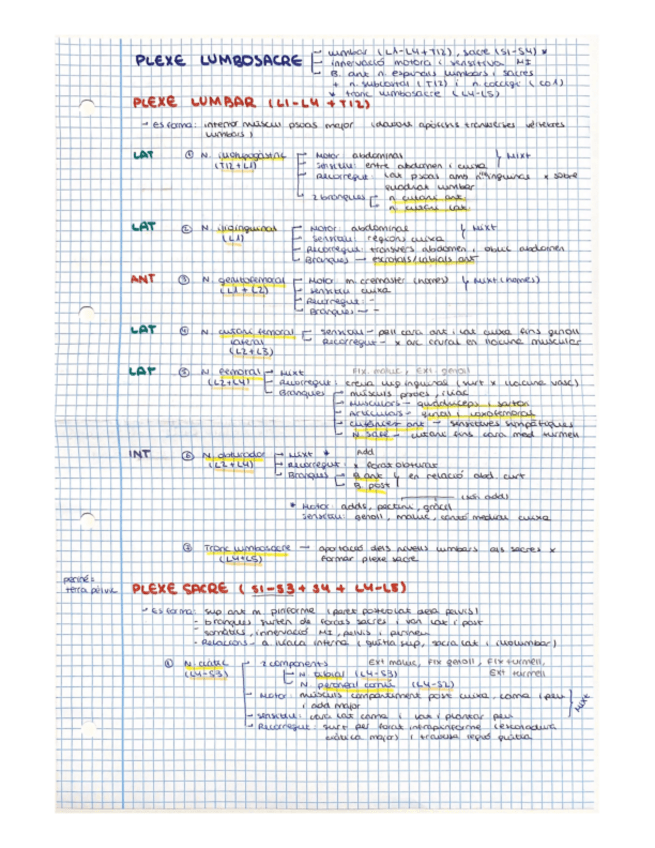 PLEXE LUMBOSACRE - lumbar (L1-L4 + T12), sacre (S1-S4) *
- innervació motora i sensitiva MI
B. ant n espinals lumbars i sacres
+ n. subcostal (T12) i n coccigi (Co1)
* tronc lumbosacre (L4-L5)
PLEXE LUMBAR (L1-L4 + T12)
→ es forma: interior múscul psoas major (davant apòfisis transverses vèrtebres
lumbars)
LAT ① N. iliohipogàstric - Motor: abdominals } Mixt
(T12 + L1) - Sensitiu: entre abdomen i cuixa
- Recorregut: Lat psoas amb n inguinal x sobre
quadrat lumbar
- 2 branques - n cutani ant
- n cutani lat
LAT ② N ilioinguinal - Motor: abdominals } Mixt
(L1) - Sensitiu: regions cuixa
- Recorregut: transvers abdomen, oblic abdomen
- Branques → escrotals/labials ant
ANT ③ N genitofemoral - Motor m cremaster (homes) } Mixt (homes)
(L1 + L2) - sensitiu cuixa
- Recorregut: -
- Branques: -
LAT ④ N cutani femoral - sensitiu - pell cara ant i lat cuixa fins genoll
lateral - Recorregut - x arc crural en llacuna muscular
(L2+L3)
LAT ⑤ N femoral - Mixt Fix. maluc, Ext. genoll
(L2+L4) - Recorregut: creua lig inguinal (surt x llacuna vasc)
- Branques - músculs psoes, ilíac
- Musculars - quadríceps i sartori
- Articulars - genoll i coxofemoral
- cutànies ant - sensitives simpàtiques
- N safè - cutani fins cara med turmell
INT ⑥ N. obturador - Mixt * Add
(L2+L4) - Recorregut: x forat obturat
- Branques - B ant } en relació abd. curt
- B post
* Motor: adds, pectini, gràcil
Sensitiu: genoll, maluc, cara medial cuixa
⑦ Tronc lumbosacre - aportació dels nivells lumbars als sacres x
(L4+L5) formar plexe sacre
periné:
terra pelvic
PLEXE SACRE (S1-S3 + S4 + L4-L5)
→ Es forma: sup ant m piriforme (paret posterolat de la pelvis)
- branques surten de forats sacres i van lat i post
- somàtils, innervació MI, pelvis i perineu
- Relacions - a ilíaca interna (glútia sup, sacra lat i iliolumbar)
① N. ciàtic - 2 components Ext maluc, Fix genoll, Fix turmell,
(L4-S3) - N tibial (L4-S3) Ext turmell
- N peroneal comú (L4-S2)
- Motor: músculs compartiment post cuixa, cama i peu } Mixt
i add major
- sensitiu: cara lat cama i lat i plantar peu
- Recorregut: surt per forat infrapiriforme (escotadura
ciàtica major) i travessa regió glútia